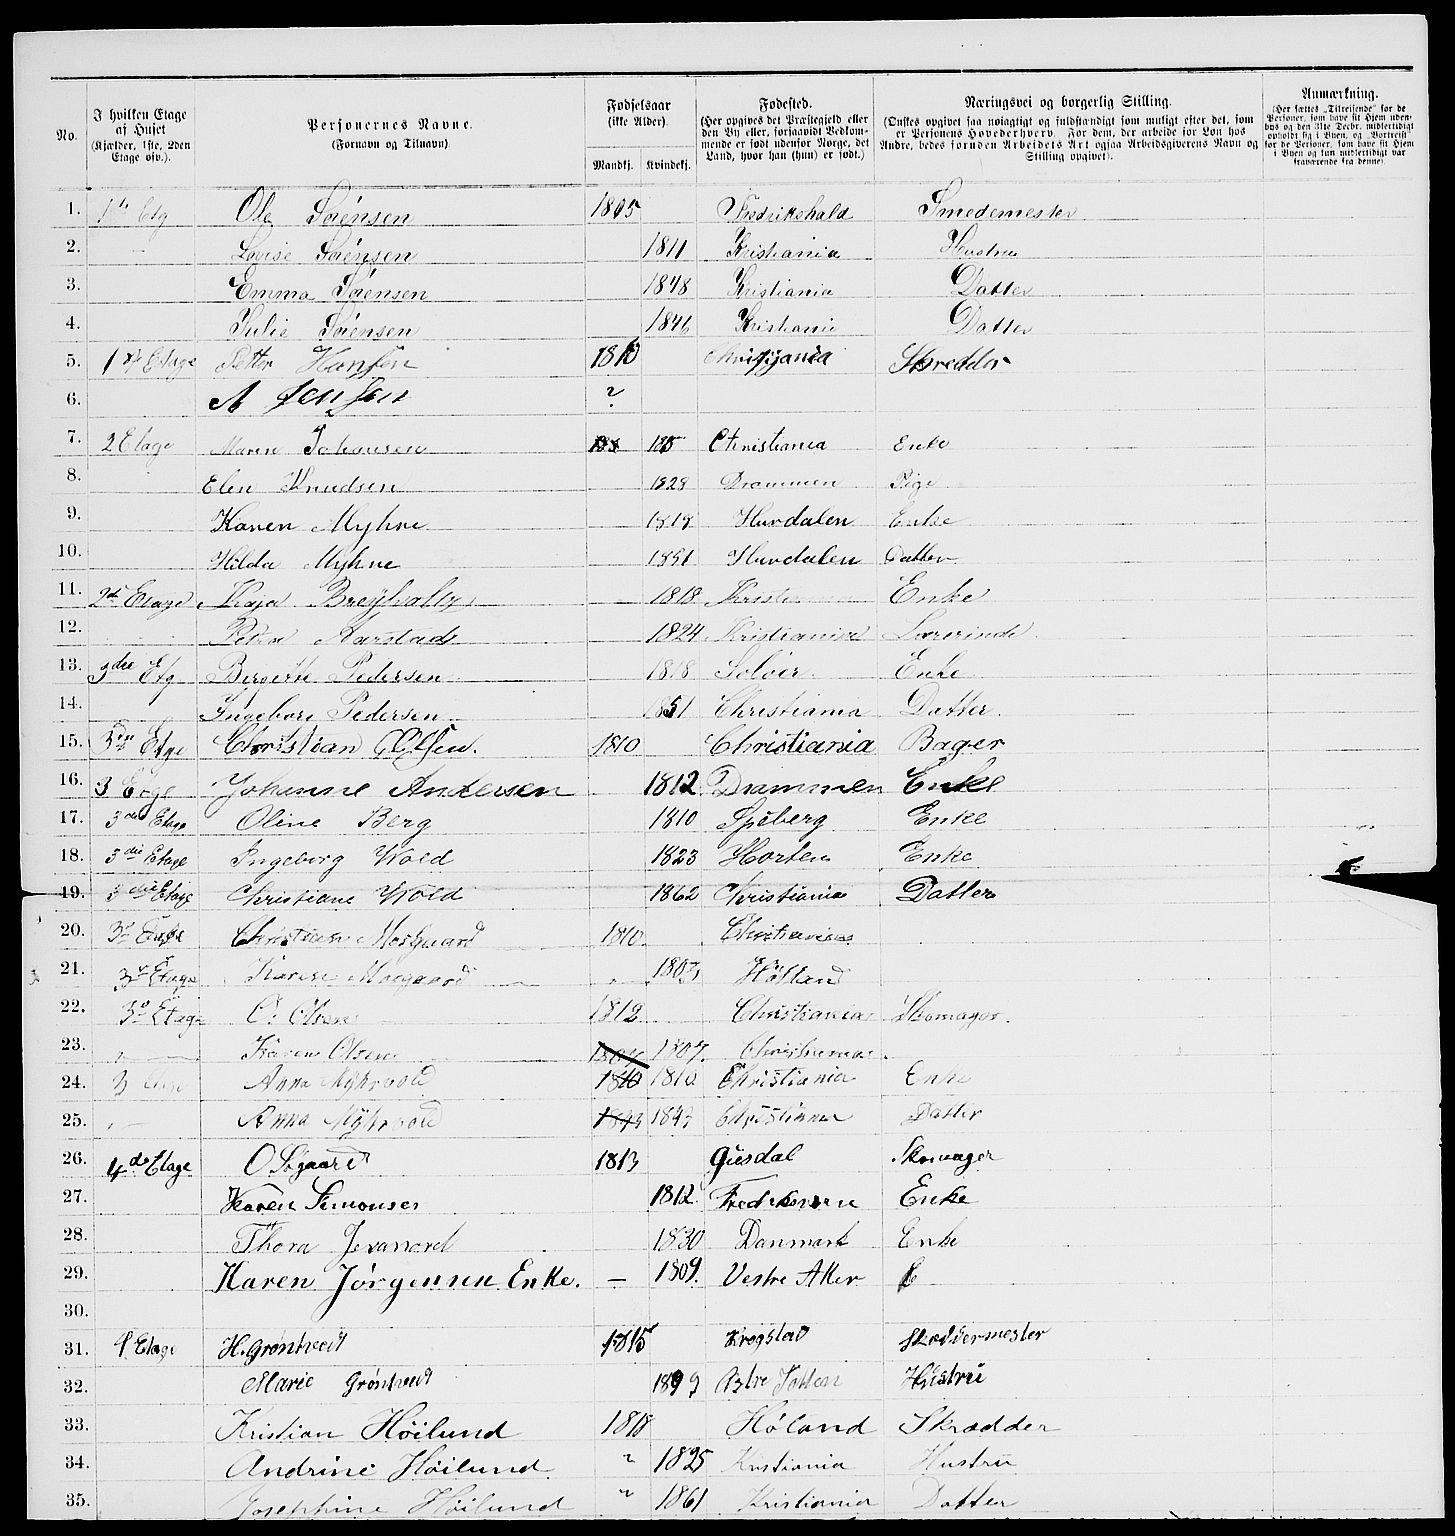 No. | I hvilken Etage af Huset (Kjælder, 1ste, 2den Etage osv.). | Personernes Navne. (Fornavn og Tilnavn) | Fødselsaar (ikke Alder). Mandkj. Kvindekj. | Fødested. (Her opgives det Præstegjeld eller den By eller, forsaavidt Vedkommende er født udenfor Norge, det Land, hvor han (hun) er født.) | Næringsvei og borgerlig Stilling. (Ønskes opgivet saa nøiagtigt og fuldstændigt som muligt efter det, som er Personens Hovederhverv. For dem, der arbeide for Løn hos Andre, bedes foruden Arbeidets Art ogsaa Arbeidsgiverens Navn og Stilling opgivet). | Anmærkning. (Her sættes „Tilreisende" for de Personer, som have sit Hjem udenbys og den 31te Decbr. midlertidigt opholdt sig i Byen, og „Bortreist" for de Personer, som have sit Hjem i Byen og kun midlertidigt var fraværende fra denne)
1. 1ste Etg Ole Sørensen 1805 Fredrikshald Smedemester
2. Lovise Sørensen 1811 Kristiania Hustru
3. Emma Sørensen 1848 Kristiania Datter
4. Julie Sørensen 1846 Kristiania Datter
5. 1st Etage Petter Hansen 1810 Christiania Skredder
6. A Jensen ?
7. 2 Etage Maren Johansen Christiania Enke
8. Elen Knudsen 1828 Drammen Pige
9. Karen Myhre 1818 Hurdalen Enke
10. Hilda Myhre 1851 Hurdalen Datter
11. 2den Etage Kaja 1818 Kristiania Enke
12. Petra Aarstad 1824 Kristiania Lærerinde
13. 3die Etg Birgitte Pedersen 1818 Soløer Enke
14. Ingeborg Pedersen 1851 Christiania Datter.
15. Etge Christian Olsen. 1810 Christiania Bager
16. 3 Etge Johanne Andersen 1812 Drammen Enke
17. 3die Etage Oline Berg 1810 Spiberg Enke
18. 3die Etage Ingeborg Wold 1823 Horten Enke
19. 3die Etage Christiane Wold 1862 Christiania Datter
20. Christian Mosgaard 1810 Christiania
21. 3 Etage Karen Mosgaard Høiland
22. 3 Etage O: Olsen 1812 Christiania Skomager.
23. Karen Olsen 1807. Christiania
24. 3 Etage Anna Myhrvold 1810 1810 Christiania Enke
25. Anna Myhrvold 1843 1843 Christiania Datter
26. 4de Etage O Søgaard 1813 Gusdal Skomager
27. Karen Simonsen 1812 Enke
28. Thora 1830 Danmark Enke
29. Karen Jørgensen Enke. — 1809. Vestre Aker
30.
31. 4 Etage H. Grøntvedt 1815 Krogstad Skreddermester
32. Marie Grøntvedt Østre Totten Hustru
33. Kristian Höilund 1818 Høland Skrædder
34. Andrine Höilund. " 1825 Kristiania Hustru
35. Josephine Höilund " 1861 Kristiania Datter